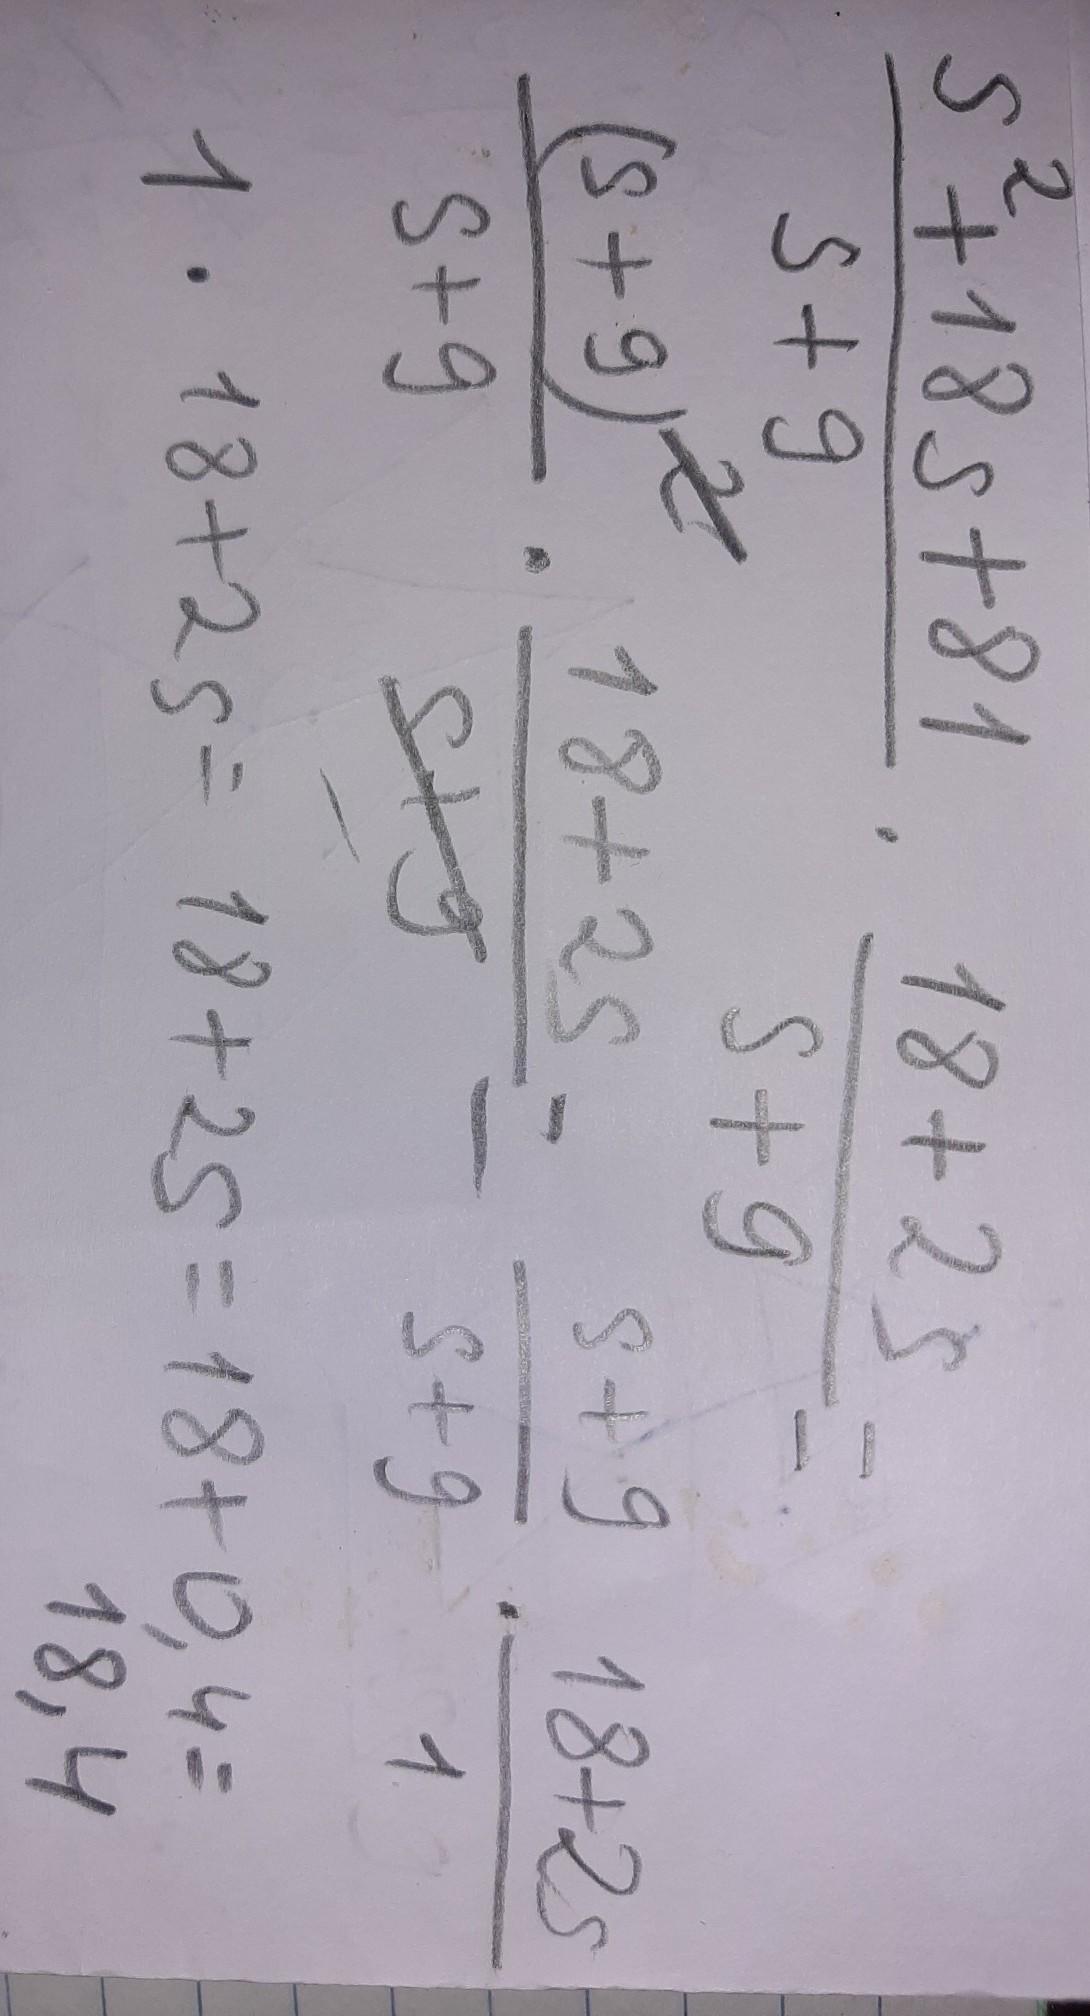 s²+18s+81 / s+9 · 18+2s / s+9 =
(s+9)² / s+9 · 18+2s / s+9 = s+9 / s+9 · 18+2s / 1
1 · 18+2s = 18+2s = 18+0,4=
18,4